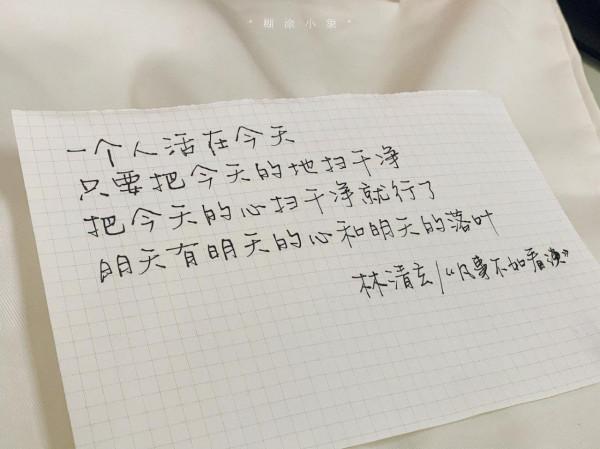 "糊涂小象"
一个人活在今天
只要把今天的地扫干净
把今天的心扫干净就行了
明天有明天的心和明天的落叶
林清玄/“凡事不如看淡》